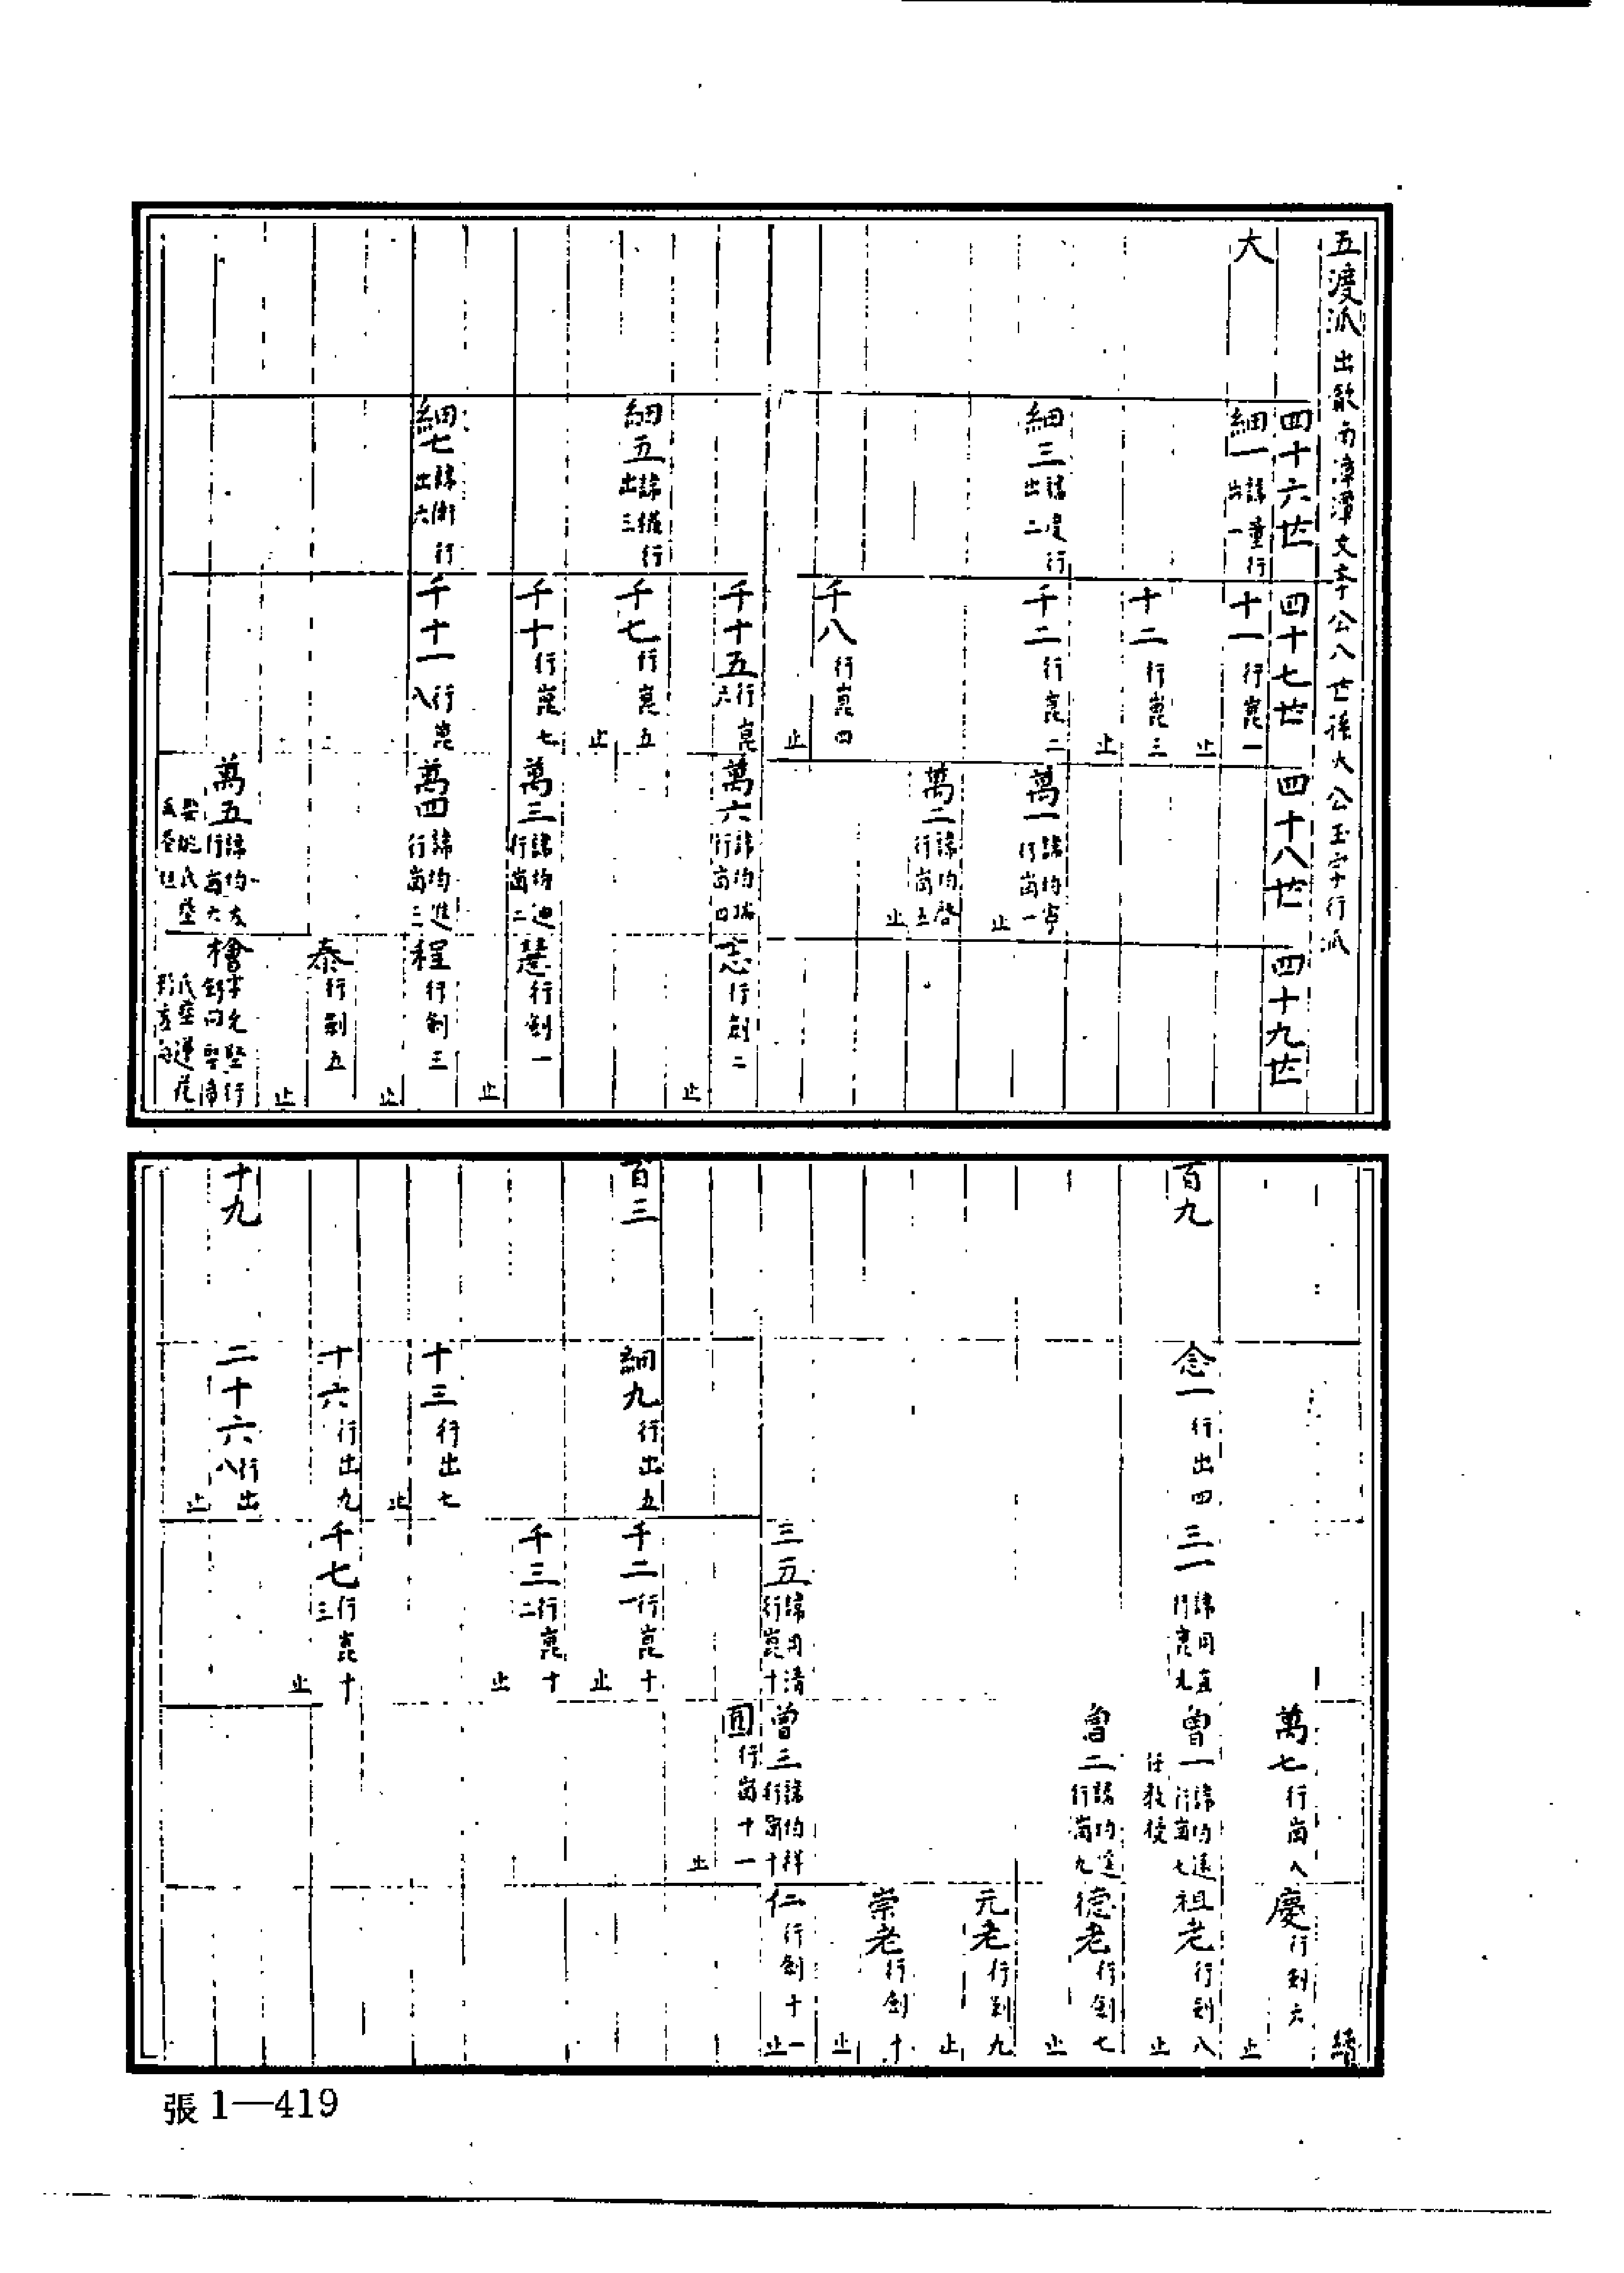 五渡派 出歙南漳潭文孝公八世孫大公玉字行派
四十六世 四十七世 四十八世 四十九世
大 細一 諱童行出一 十一 行崑一 止
十二 行崑三 止
細三 諱 行出二 千二 行崑二 萬一 諱均亨行崗一 止
萬二 諱均啓行崗五 止
千八 行崑四 止
千十五 行崑六 萬六 諱均瑞行崗四 志 行劍二 止
細五 諱 行出三 千七 行崑五 止
千十 行崑七 萬三 諱均迪行崗二 慧 行劍一 止
細七 諱衡行出六 千十一 行崑八 萬四 諱均進行崗三 程 行劍三 止
泰 行劍五 止
萬五 諱均 行崗六 檜
續
萬七 行崗八 慶 行劍六 止
百九 念一 行出四 三一 諱同直行崑九 曾一 諱均遠行崗七 任教授 祖老 行劍八 止
曾二 諱均 行崗九 德老 行劍七 止
元老 行劍九 止
崇老 行劍十 止
三五 諱同清行崑十 曾三 諱均祥行崗十 仁 行劍十一 止
圃 行崗十一 止
百三 細九 行出五 千二 行崑十一 止
千三 行崑十二 止
十三 行出七 止
十六 行出九 千七 行崑十三 止
十九 二十六 行出八 止
張1—419